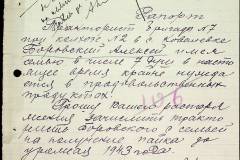 Рапорт
Тракторист бригады №7
под колхоза №2 в с. Ковалевке
Боровский Алексей имея
семью в числе 7 душ в насто
ящее время крайне нужда
ется в продовольственных
продуктах.
Прошу вашего распоря
жения зачислить тракто
риста Боровского с семьей
на получение пайка до
урожая 1943 года.